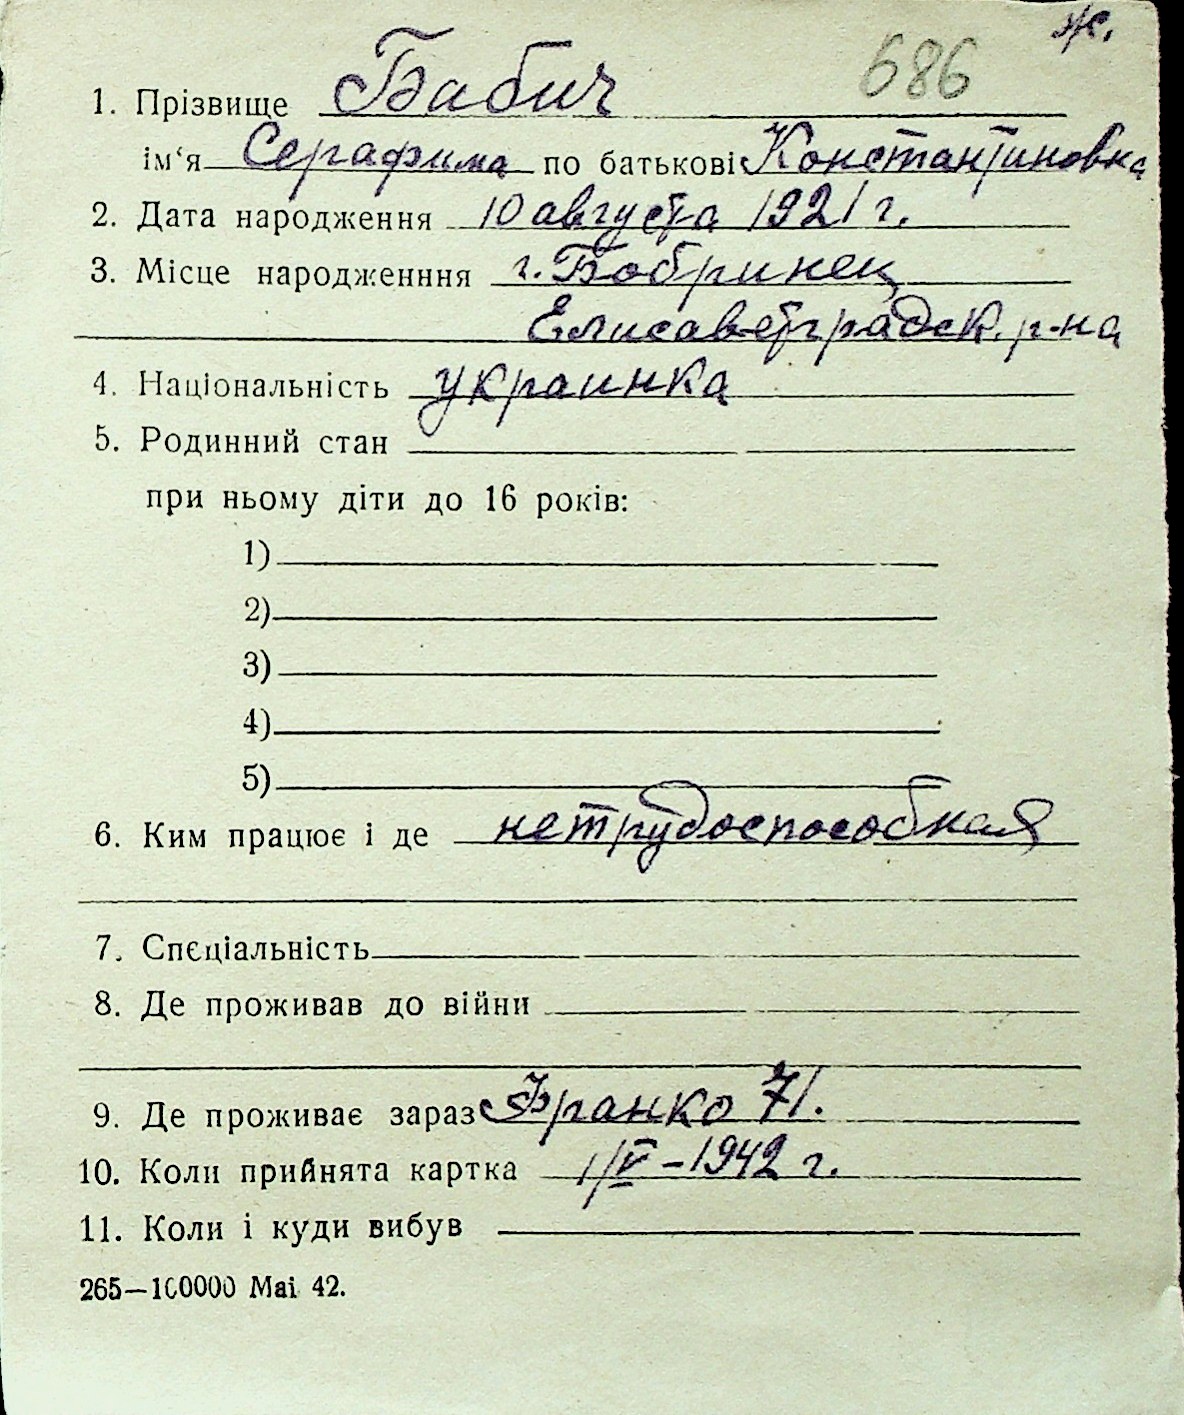 ж.
686
1. Прізвище Бабич
ім‘я Серафима по батькові Константиновна
2. Дата народження 10 августа 1921 г.
3. Місце народженння г. Бобринец
Елисаветградск. р-на
4. Національність украинка
5. Родинний стан
при ньому діти до 16 років:
1)
2)
3)
4)
5)
6. Ким працює і де нетрудоспособная
7. Спеціальність
8. Де проживав до війни
9. Де проживає зараз Франко 71.
10. Коли прийнята картка 1/V – 1942 г.
11. Коли і куди вибув
265—100000 Mai 42.